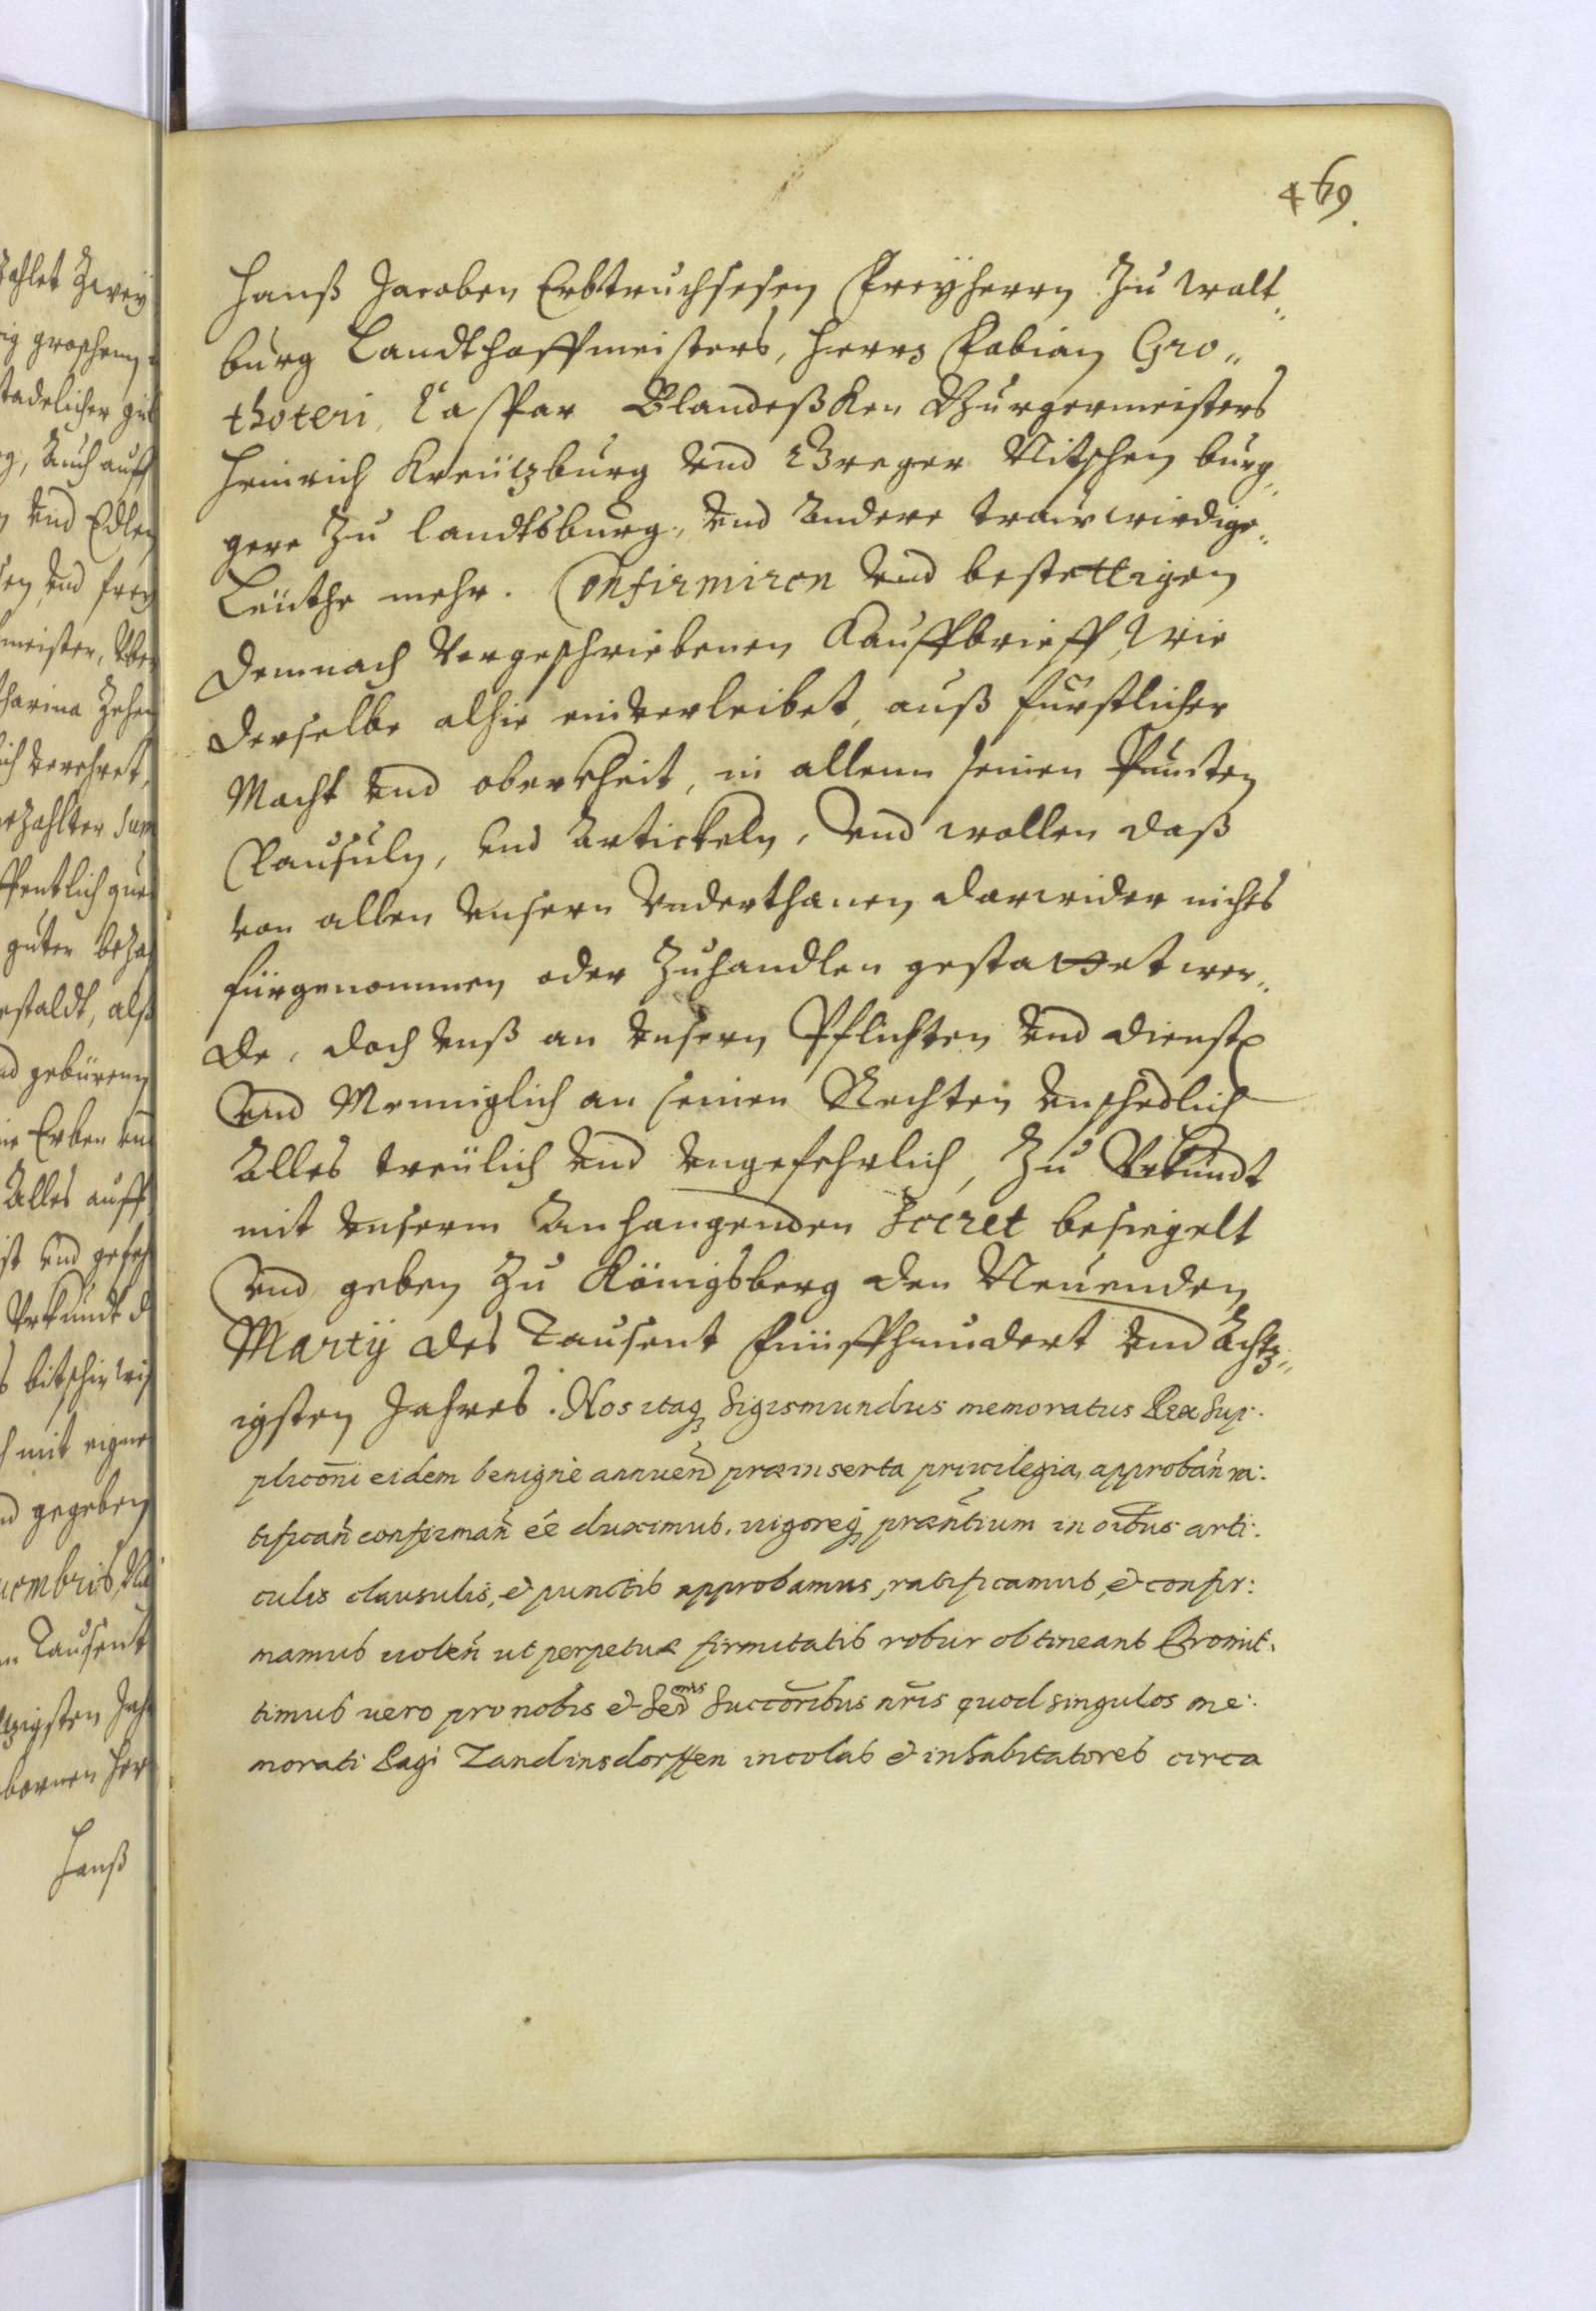 469.
Hanß Jacoben Erbtruchsesen Freÿherrn Zu Walt„
burg Landthoffmeisters, Herrn Fabian Gro„
thoteri, Caspar Blandeßken Burgermeisters
Heinrich Kreützburg vnd Greger Nitschen burg„
gere Zu landtsburg, vnd Andere trawwirdige„
Leüthe mehr. Confirmiren vnd bestettigen
Demnach Vorgeschriebenen Kauffbrieff, Wie
Derselbe alhie einverleibet, auß fürstlicher
Macht vnd oberkheit, in allenn seinen Puncten
Clausuln, vnd Artickeln, vnd wollen daß
von allen vnsern Vnderthanen darwider nichts
fürgenommen oder Zuhandlen gestattet wer„
de, doch vnß an vnsern Pflichten vnd dienst
vnd Menniglich an seinen Rechten vnschedlich
Alles treülich vnd vngefehrlich, Zu Vrkundt
mit vnserm Anhangenden Secret besiegelt
vnd geben Zu Königsberg den Neunden
Martÿ des Tausent Fünffhundert vnd Achtz„
igsten Jahres. Nos itaq Sigismundus memoratus Rex Sup:
plicoñi eidem benignè annueñ præinserta privilegia, approbañ ra:
tificañ confirmañ eé duximus, uigoreq præñtium in oîbus arti:
culis clausulis, & punctis approbamus, ratificamus, & confir:
mamus uoleñ ut perpetuæ firmitatis robur obtineant Promit:
timus uero pro nobis & Ser̃mis Succoribus nr̃is quod singulos me:
morati Pagi Zandinsdorffen incolas & inhabitatores circa
Hanß